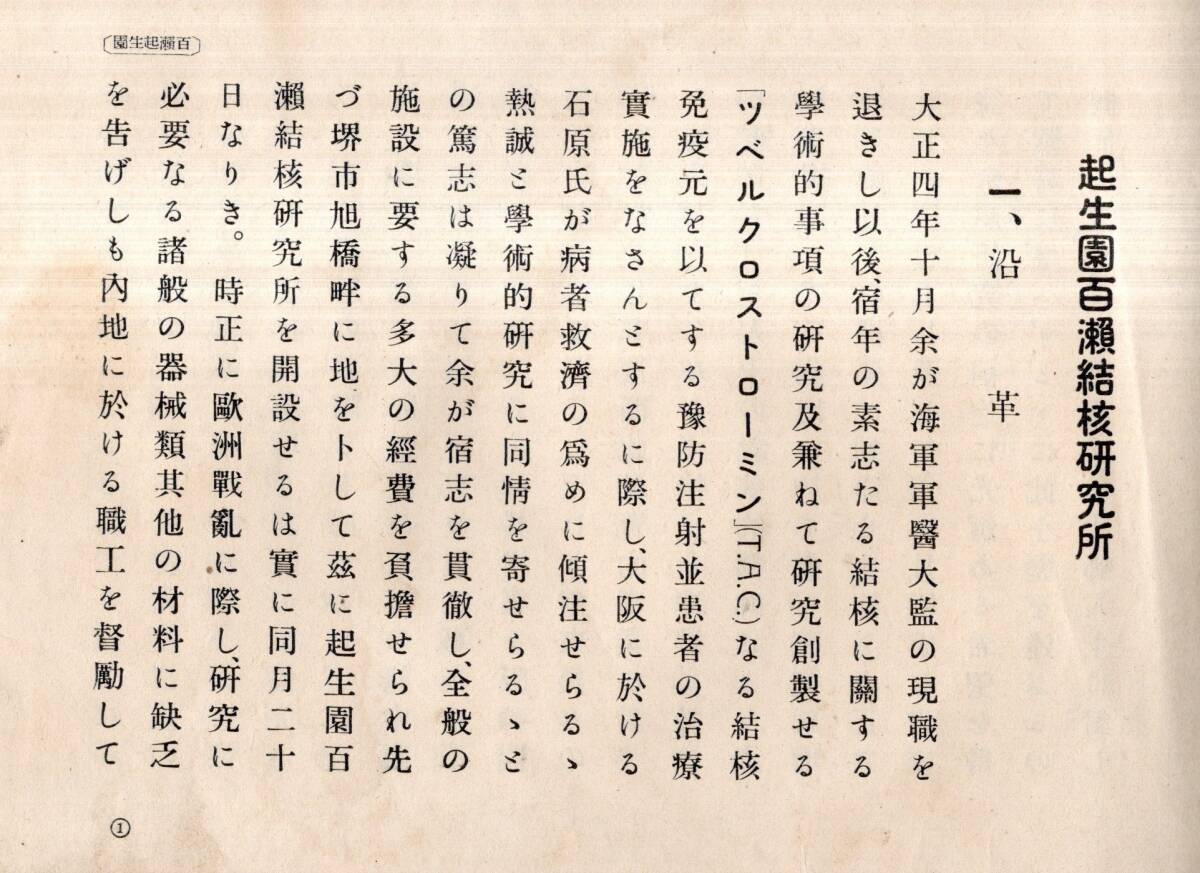 起生園百瀨結核研究所
一、沿革
大正四年十月余が海軍軍醫大監の現職を
退きし以後、宿年の素志たる結核に關する
學術的事項の研究及兼ねて研究創製せる
「ツベルクロストローミン」(T.A.C.)なる結核
免疫元を以てする豫防注射並患者の治療
實施をなさんとするに際し、大阪に於ける
石原氏が病者救濟の爲めに傾注せらるゝ
熱誠と學術的研究に同情を寄せらるゝと
の篤志は凝りて余が宿志を貫徹し、全般の
施設に要する多大の經費を負擔せられ先
づ堺市旭橋畔に地を卜して茲に起生園百
瀨結核研究所を開設せるは實に同月二十
日なりき。時正に歐洲戰亂に際し、研究に
必要なる諸般の器械類其他の材料に缺乏
を告げしも內地に於ける職工を督勵して
園生起瀨百
①